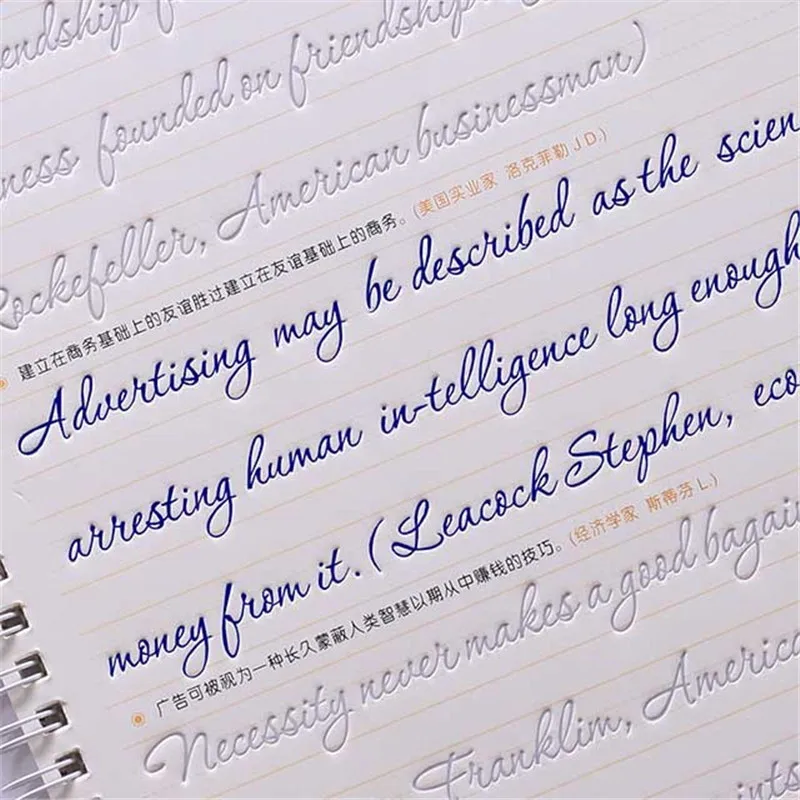 founded on friendship
Rockefeller, American businessman)
建立在商务基础上的友谊胜过建立在友谊基础上的商务。(美国实业家 洛克菲勒 J.D.)
Advertising may be described as the scien
arresting human in-telligence long enough
money from it. (Leacock Stephen, eco
广告可被视为一种长久蒙蔽人类智慧以期从中赚钱的技巧。(经济学家 斯蒂芬 L.)
Necessity never makes a good bagain
Franklim, America